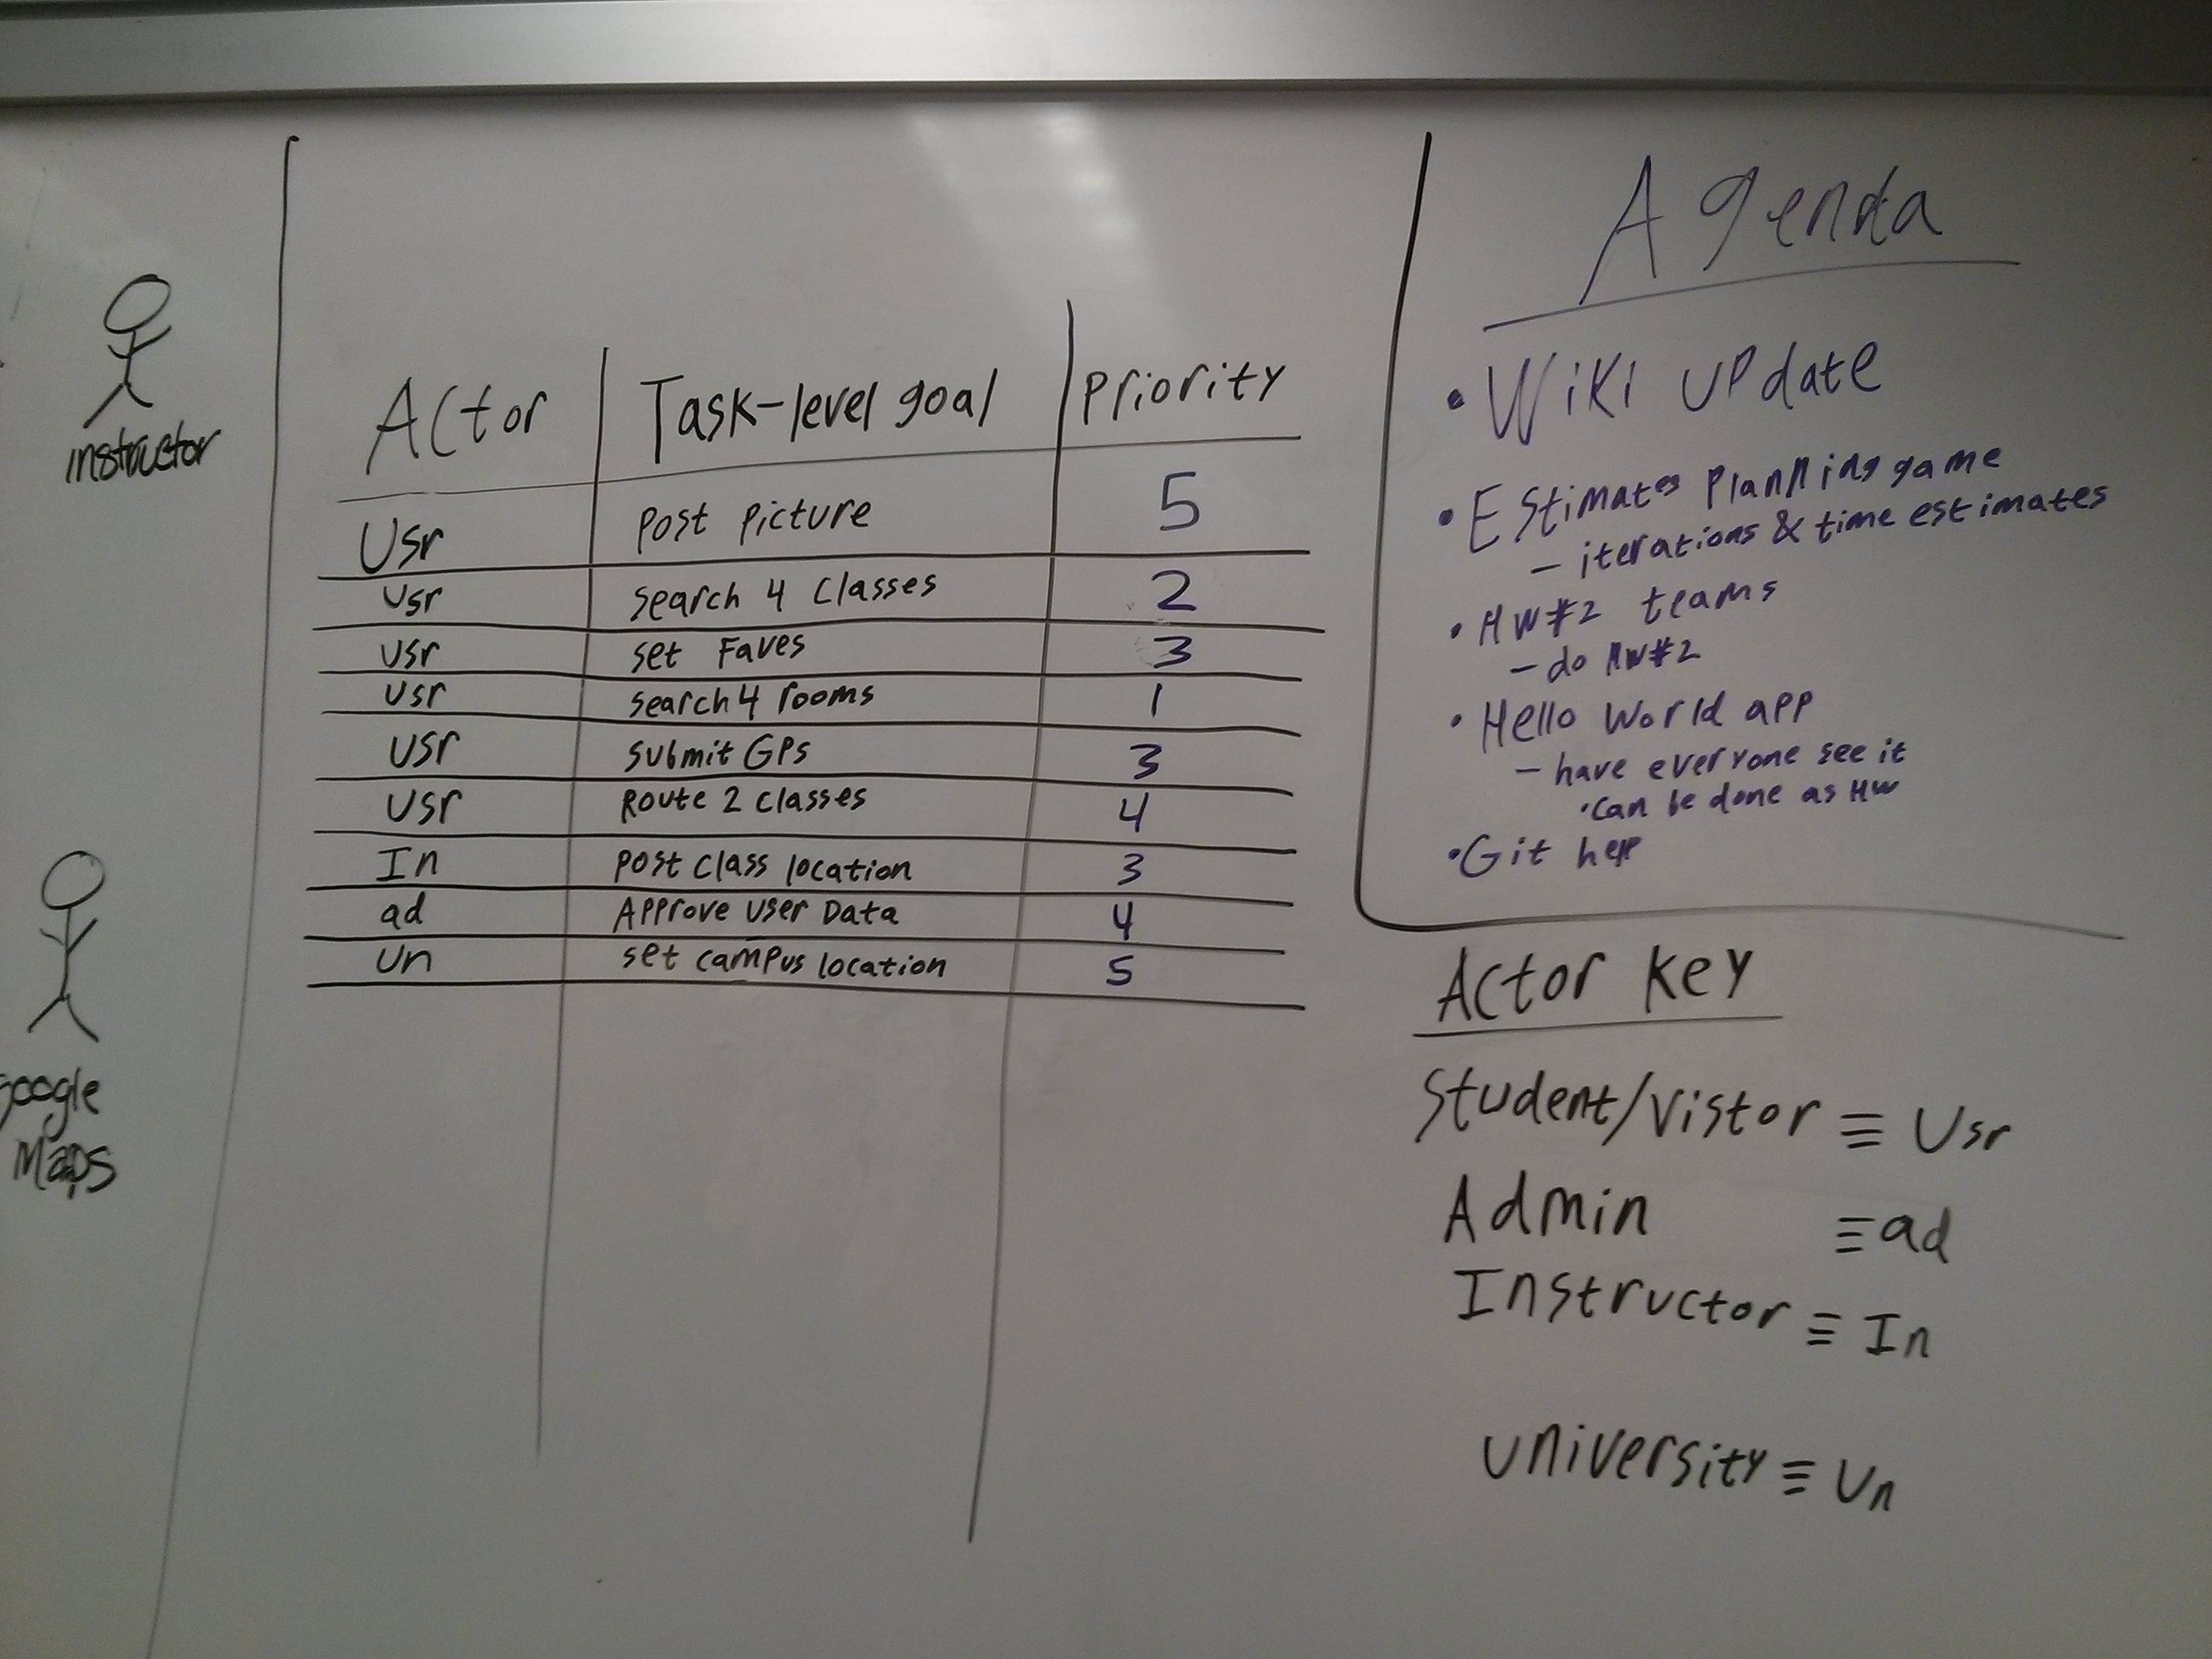 instructor
Google
Maps
Actor Task-level goal Priority
Usr Post Picture 5
Usr Search 4 Classes 2
Usr Set Faves 3
Usr Search 4 rooms 1
Usr Submit GPS 3
Usr Route 2 Classes 4
In Post Class location 3
ad Approve User Data 4
Un set campus location 5
Agenda
• Wiki update
• Estimates Planning game
- iterations & time estimates
• HW#2 teams
- do HW#2
• Hello World app
- have everyone see it
• Can be done as HW
• Git help
Actor Key
Student/Vistor ≡ Usr
Admin ≡ ad
Instructor ≡ In
University ≡ Un